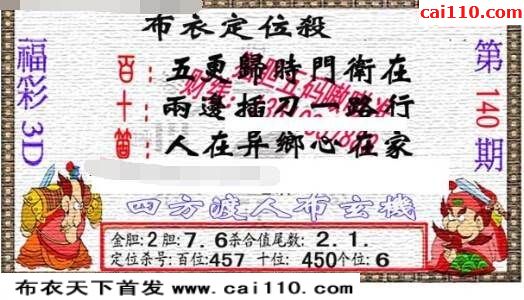 cai110.com
布衣定位殺
福彩3D
第140期
百：五更歸時門衛在
十：兩邊插刀一路行
個：人在异鄉心在家
四方渡人布玄機
金胆:2胆:7.6杀合值尾数:2.1.
定位杀号:百位:457 十位:450个位:6
布衣天下首发 www.cai110.com